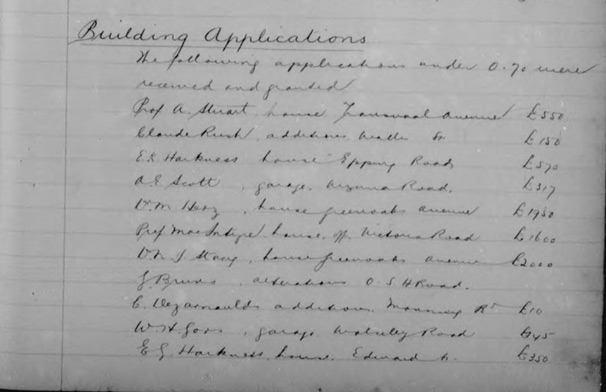 Building Applications
The following applications under O.70 were
received and granted
Prof A. Stuart, house Transvaal Avenue £550
Claude Rush, additions, Wallis St £150
E.G. Harkness house Epping Road £570
A.E. Scott, garage, Road. £317
Dr. M. Herz, house Greenoaks Avenue £1950
Prof MacIntyre house, off Victoria Road £1600
house Greenoaks Avenue £2000
alterations O.S.H Road.
additions, Manning Rd £10
garage Wolseley Road £45
E.G. Harkness, house, Edward St. £350